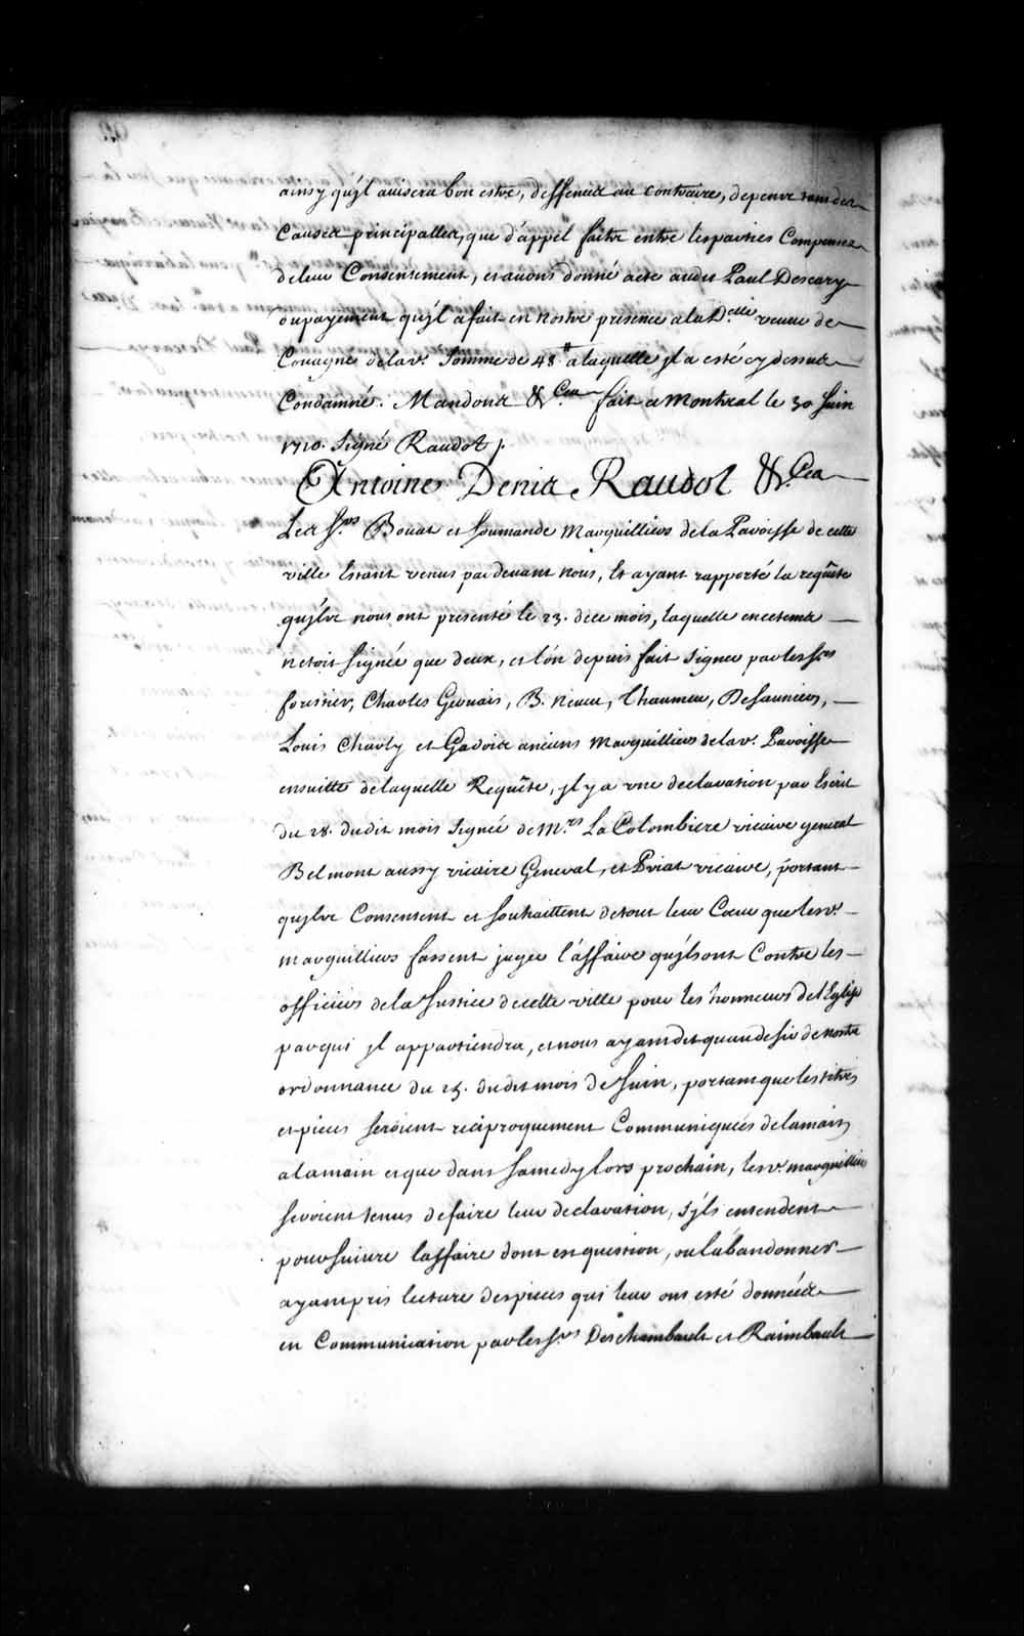 ainsy qu'jl auisera bon estre, deffences au contraire, depens tant des
Causes principalles, que d'appel faite entre les parties Compensez
de leur Consentement, et auons donné acte audit Paul Descary
du payement qu'jl a fait en nostre presence a la D.elle veuue de
Couagne de lad.e Somme de 48.tt a laquelle jl a esté cy dessus
Condamné. Mandons &.Cea fait a Montreal le 30 Juin
1710. Signé Raudot /.
Antoine Denis Raudot &.Cea
Les S.rs Bouat et Soumande Marguilliers de la Paroisse de cette
ville Estant venus par deuant nous, Et ayant rapporté la requête
qu'jls nous ont presenté le 23. de ce mois, laquelle en ce tems
n'etoit signée que d'eux, et l'ôn depuis fait signer par les S.rs
fortier, Charles Geruais, B. neueu, Thaumeu, Desauniers,
Louis Charly et Gadois anciens Marguilliers de lad. Paroisse
ensuitte de laquelle Requête, jl y a vne declaration par Escrit
du 28. dudit mois signée de M.rs La Colombiere vicaire general
Belmont aussy vicaire General, et Priat vicaire, portant
qu'jls Consentent et souhaittent de tout leur Cœur que lesd.
marguilliers fassent juger l'affaire qu'jls ont Contre les
officiers de la Justice de cette ville pour les honneurs de l'Eglise
par qui jl appartiendra, et nous ayant dit qu'en desir de nostre
ordonnance du 25. dudit mois de Juin, portant que les titres
et pieces seroient reciproquement Communiquées de la main
a la main et que dans samedy lors prochain, lesd. marguilliers
seroient tenus de faire leur declaration, s'jls entendent
poursuiure l'affaire dont en question, ou l'abandonner
ayant pris lecture des pieces qui leur ont esté données
en Communication par les S.rs Deschambault et Raimbault